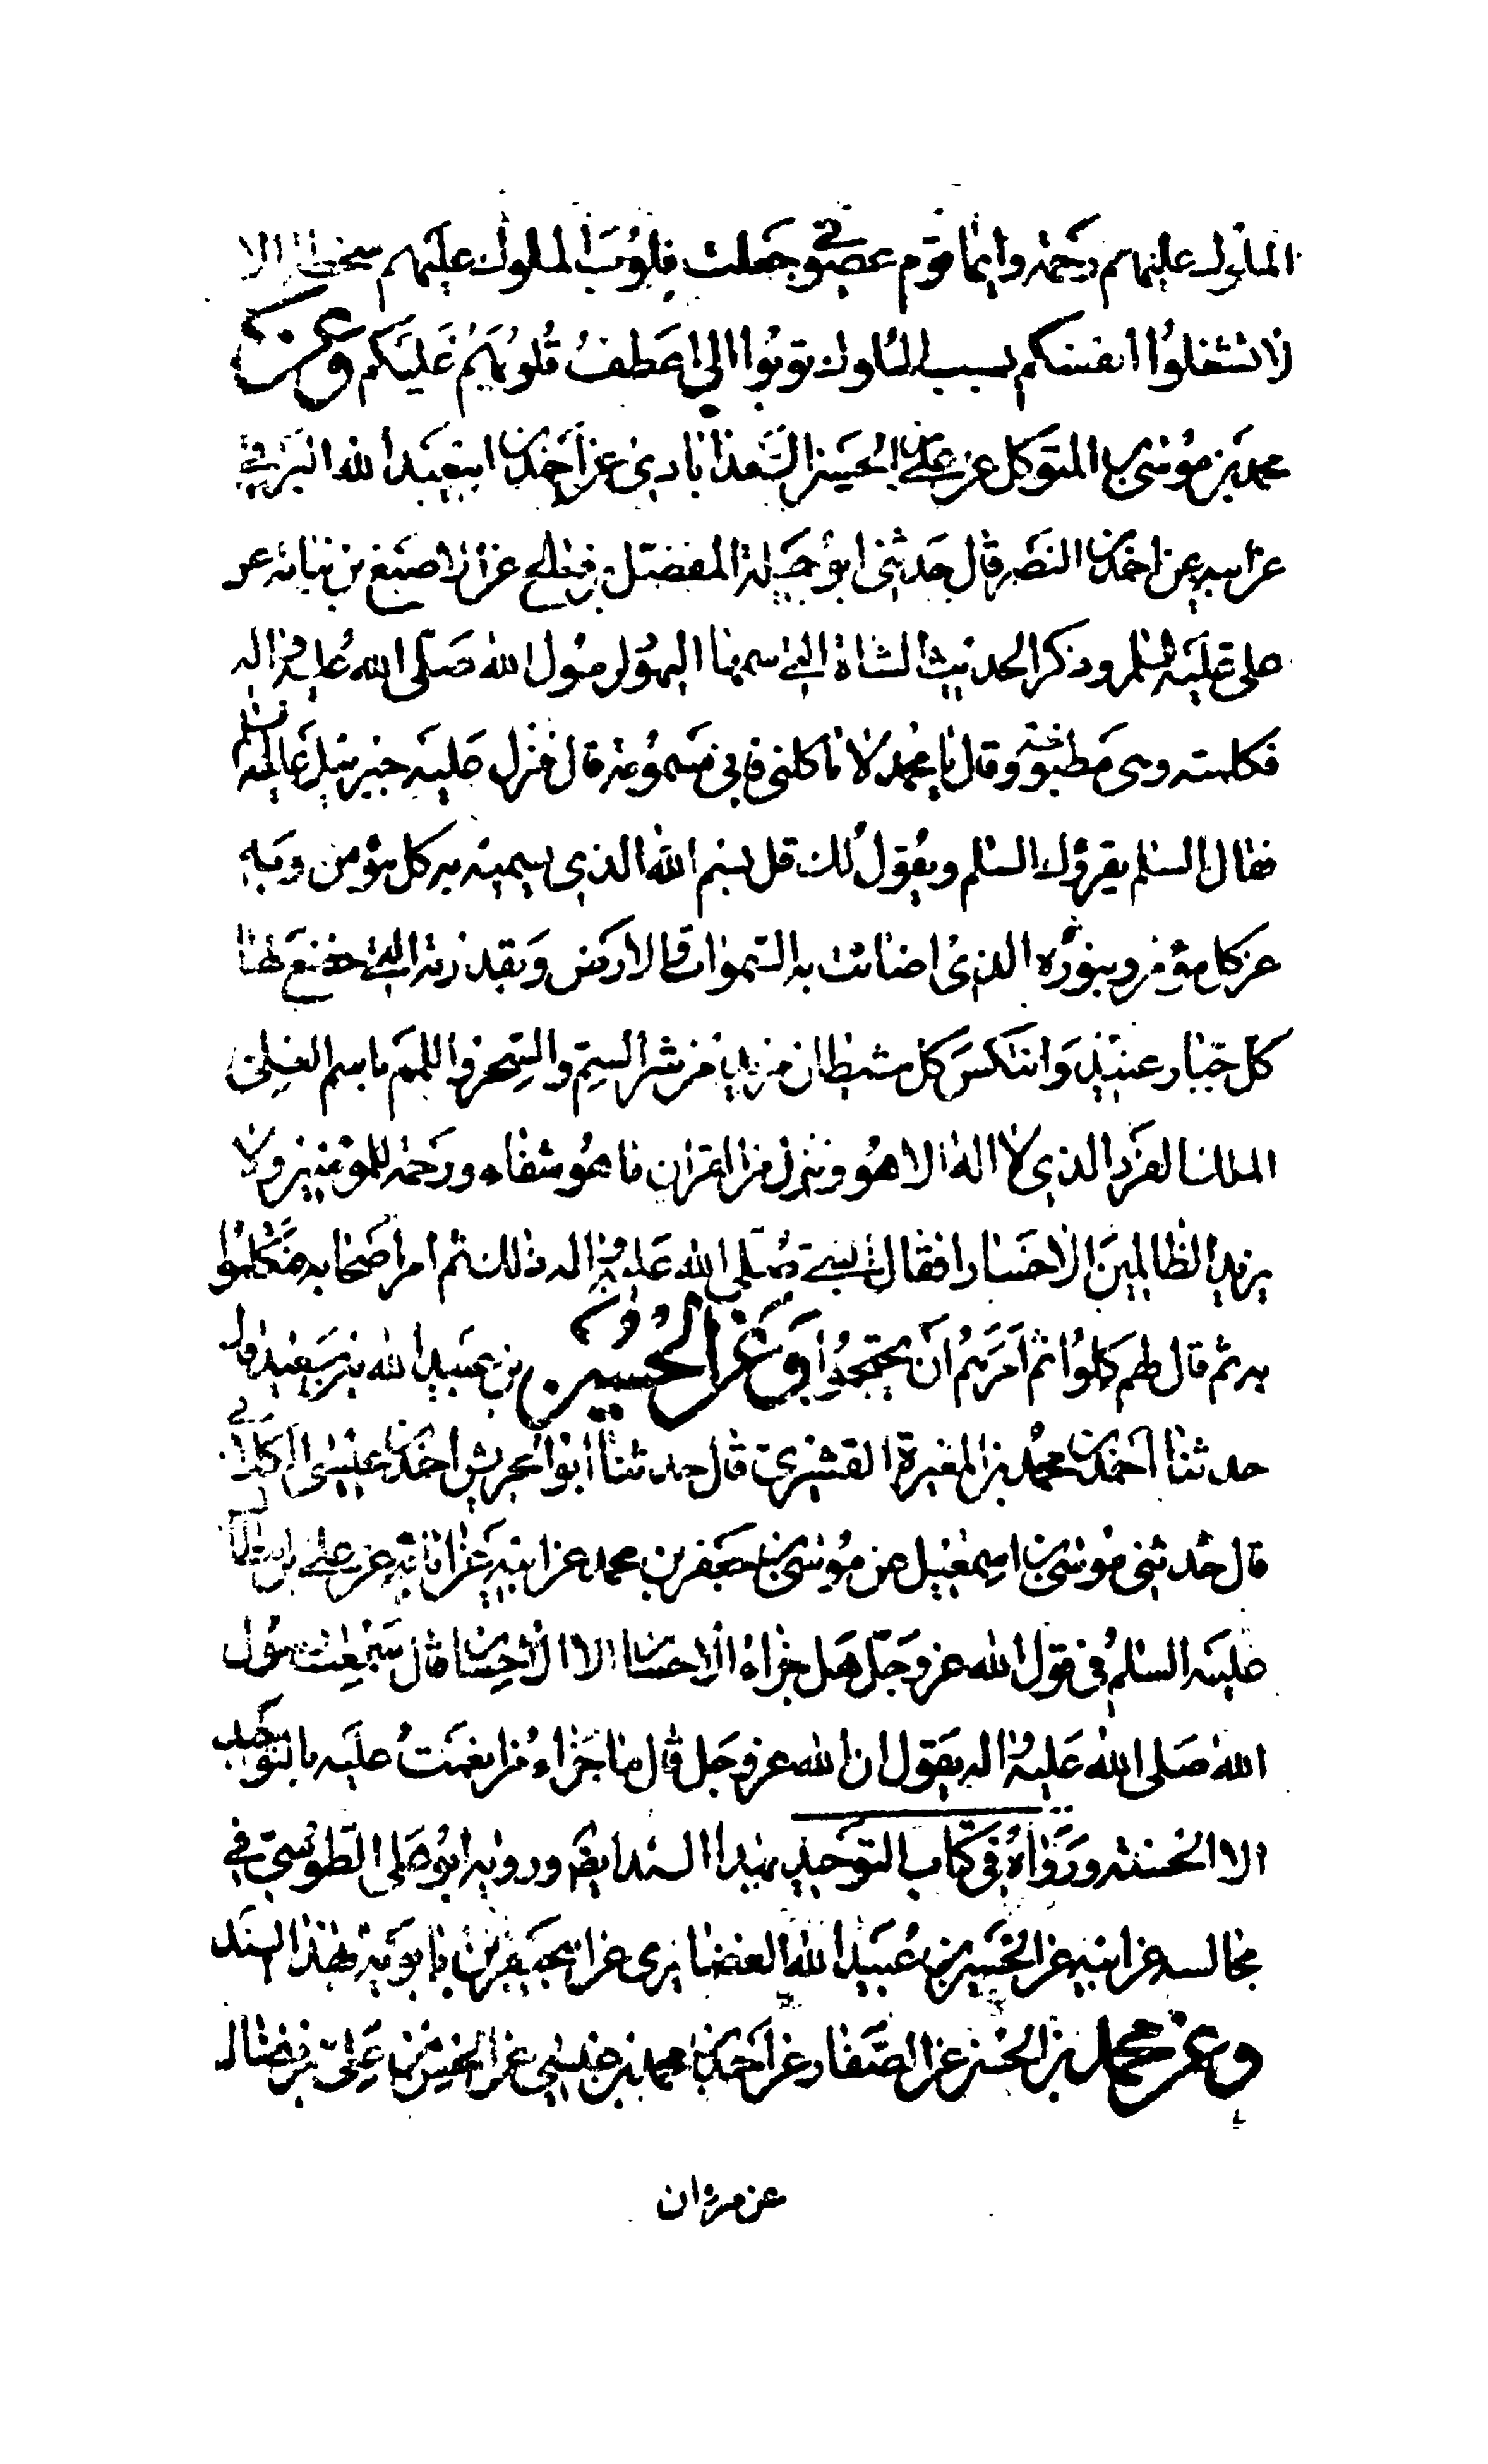 الملوك عليهم رحمة وايما قوم عصوني جعلت قلوب الملوك عليهم سخطة الا
لا تشغلوا انفسكم بسب الملوك توبوا الي اعطف قلوبهم عليكم وعن
محمد بن موسى بن المتوكل عن علي بن الحسين السعدابادي عن احمد بن ابيعبد الله البرقي
عن ابيه عن احمد بن النضر قال حدثني ابو جميلة المفضل بن صالح عن الاصبغ بن نباته عن
علي عليه السلم وذكر الحديث الشاة التي سمها اليهود لرسول الله صلى الله عليه واله
فكلمته وهى مطبوخة وقال يا محمد لا تاكلني فاني مسمومة قال فنزل عليه جبرئيل عليه السلم
فقال السلم يقرؤك السلم ويقول لك قل بسم الله الذي يسميه به كل مؤمن وبه
عز كل مؤمن وبنوره الذى اضائت به السموات والارض وبقدرته التي خضع لها
كل جبار عنيد وانتكس كل شيطان مريد من شر السم والسحر واللمم باسم العلى
الملك الفرد الذي لا اله الا هو وننزل من القران ما هو شفاء ورحمة للمؤمنين ولا
يزيد الظالمين الا خسارا فقال النبي صلى الله عليه واله ذلك ثم امر اصحابه فتكلموا
به ثم قال لهم كلوا ثم امرهم ان يحتجموا وعن الحسين بن عبيد الله بن سعيد قال
حدثنا احمد بن محمد بن المغيرة القشيري قال حدثنا ابو الحريش احمد بن عيسى الكلابي
قال حدثني موسى بن اسمعيل عن موسى بن جعفر بن محمد عن ابيه عن ابائه عن علي بن ابيطالب
عليه السلم في قول الله عز وجل هل جزاء الاحسان الا الاحسان قال سمعت رسول
الله صلى الله عليه واله يقول ان الله عز وجل قال ما جزاء من انعمت عليه بالتوحيد
الا الجنة ورواه في كتاب التوحيد بهذا السند ايضا ورويه ابو علي الطوسي في
مجالسه عن ابيه عن الحسين بن عبيد الله الغضايرى عن ابي جعفر بن بابويه بهذا السند
وعن محمد بن الحسن عن الصفار عن احمد بن محمد بن عيسى عن الحسن بن علي بن فضال
عن مروان